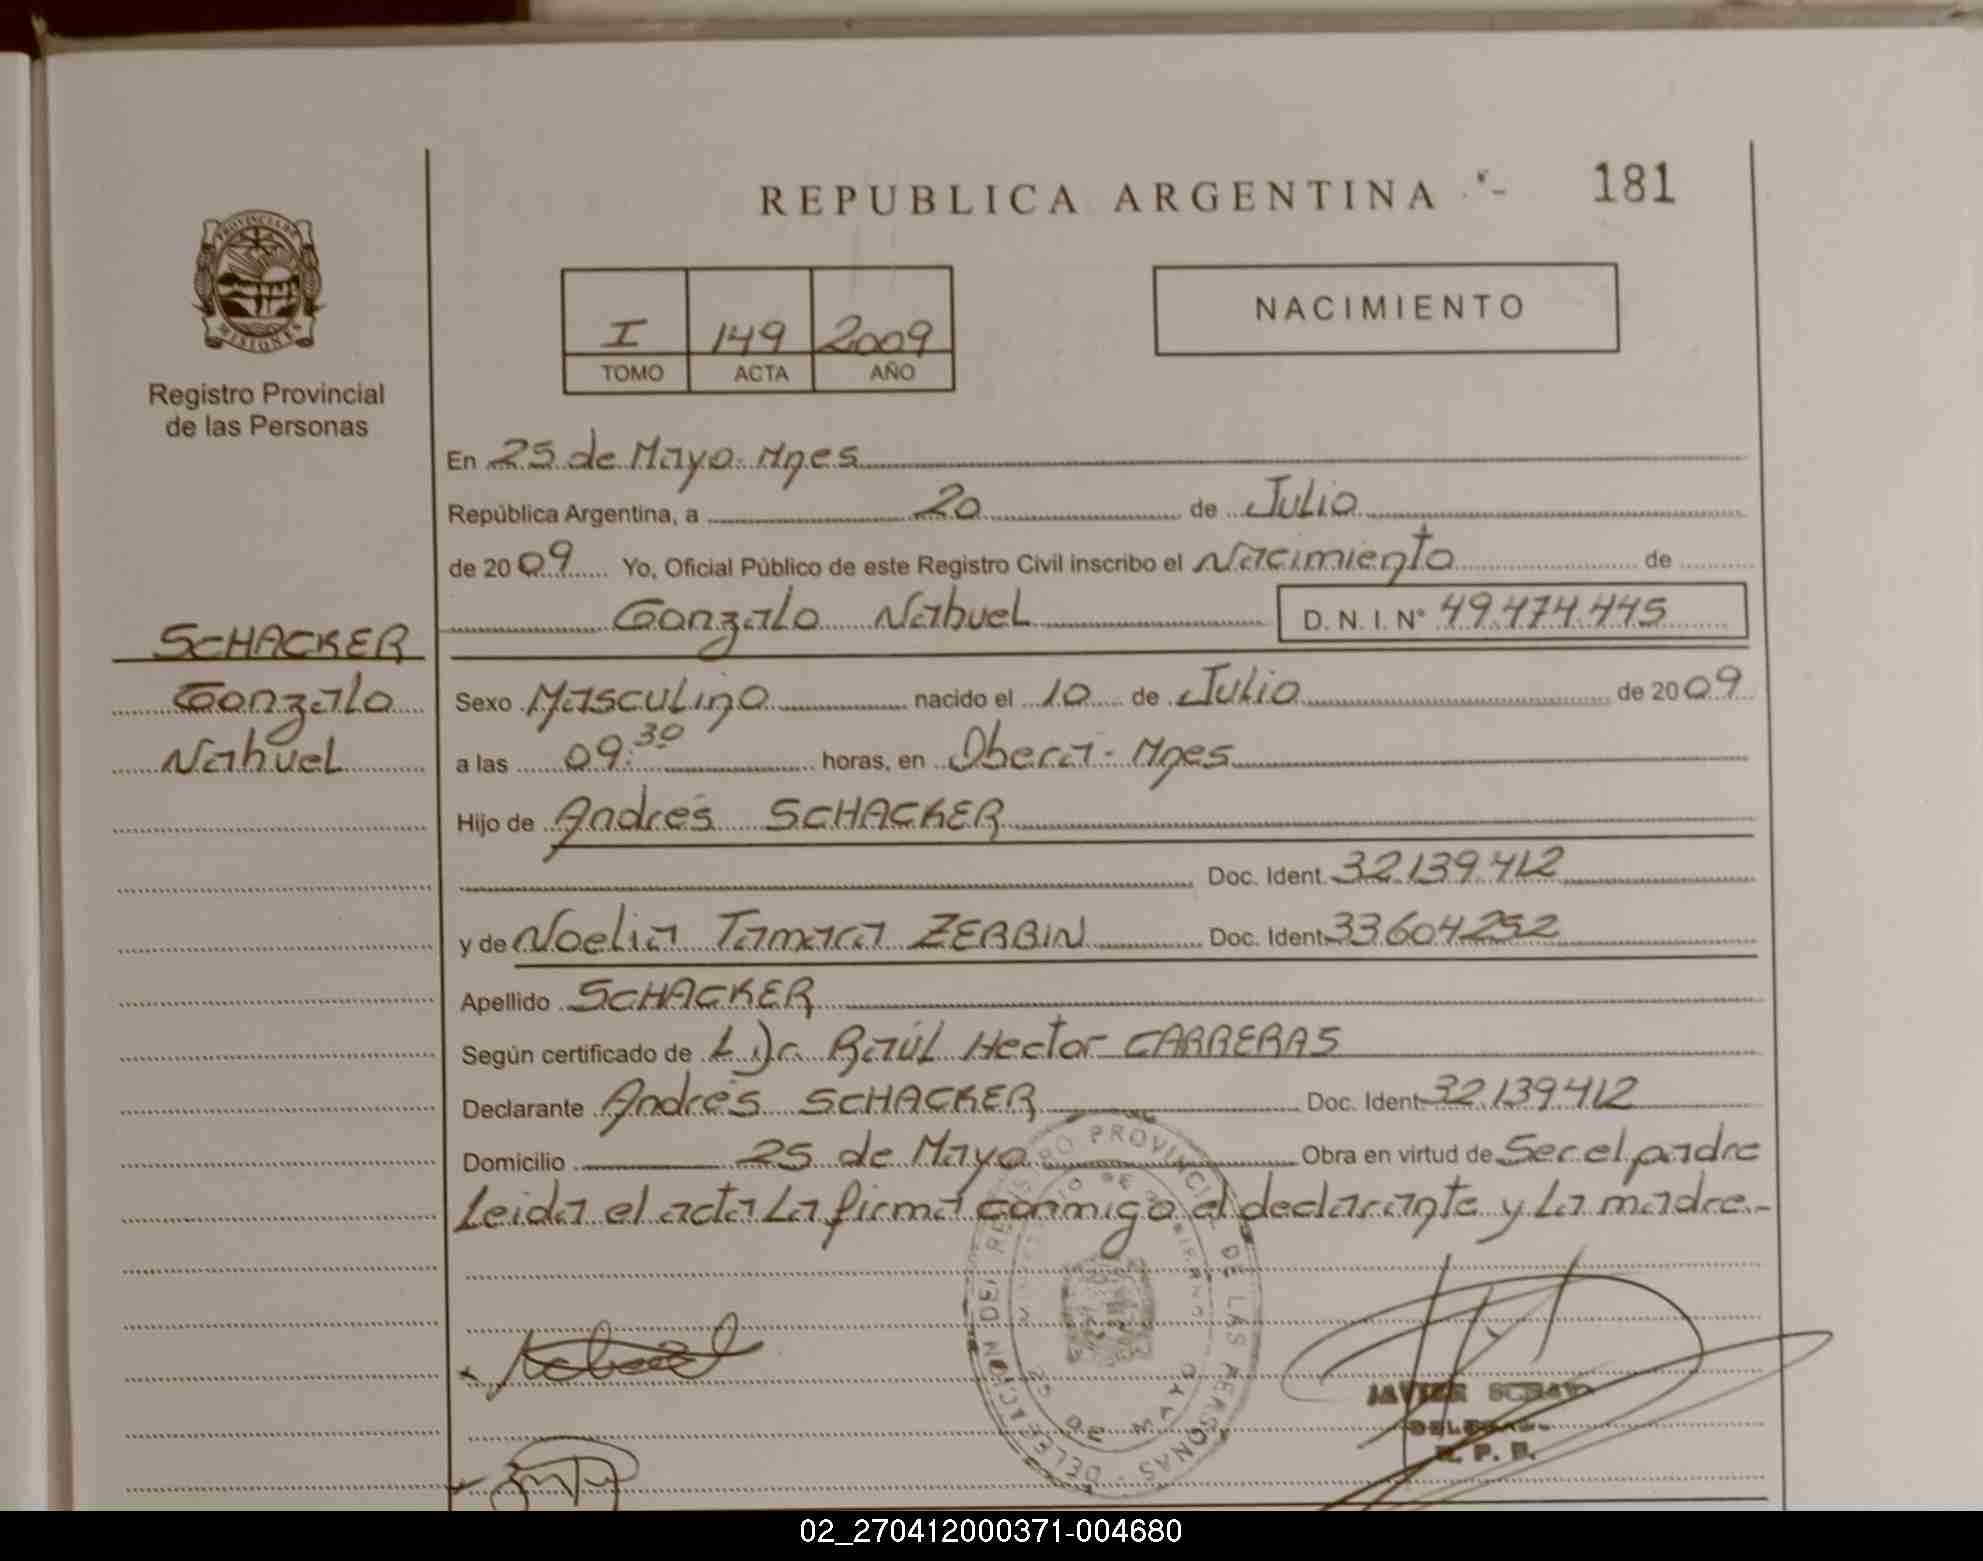 REPUBLICA ARGENTINA
181
PROVINCIA DE
MISIONES
Registro Provincial
de las Personas
I 149 2009
TOMO ACTA AÑO
NACIMIENTO
En 25 de Mayo - Mnes
República Argentina, a 20 de Julio
de 2009 Yo, Oficial Público de este Registro Civil inscribo el Nacimiento de
Gonzalo Nahuel D. N. I. Nº 49.474.445
SCHACKER
Gonzalo
Nahuel
Sexo Masculino nacido el 10 de Julio de 2009
a las 09:30 horas, en Obera - Mnes
Hijo de Andrés SCHACKER
Doc. Ident. 32.139.412
y de Noelia Tamara ZERBIN Doc. Ident. 33.604.252
Apellido SCHACKER
Según certificado de L Dr. Raúl Hector CARRERAS
Declarante Andrés SCHACKER Doc. Ident. 32.139.412
Domicilio 25 de Mayo Obra en virtud de Ser el padre
Leida el acta La firma conmigo el declarante y La madre.-
DELEGACION DEL REGISTRO PROVINCIAL DE LAS PERSONAS
MINISTERIO DE GOBIERNO
25 DE MAYO
JAVIER
R. P. P.
02_270412000371-004680